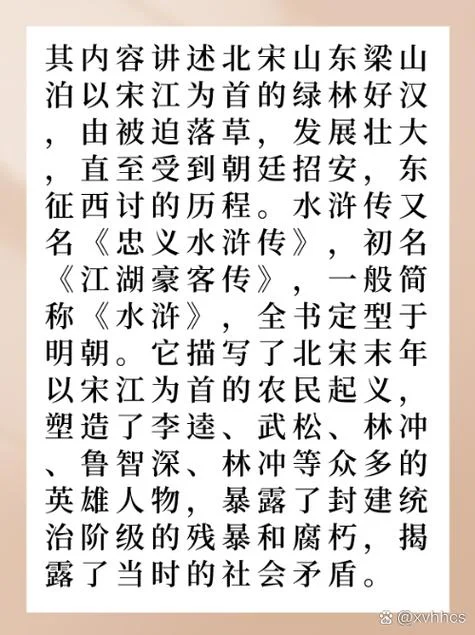 其内容讲述北宋山东梁山
泊以宋江为首的绿林好汉
，由被迫落草，发展壮大
，直至受到朝廷招安，东
征西讨的历程。水浒传又
名《忠义水浒传》，初名
《江湖豪客传》，一般简
称《水浒》，全书定型于
明朝。它描写了北宋末年
以宋江为首的农民起义，
塑造了李逵、武松、林冲
、鲁智深、林冲等众多的
英雄人物，暴露了封建统
治阶级的残暴和腐朽，揭
露了当时的社会矛盾。
@xvhhcs